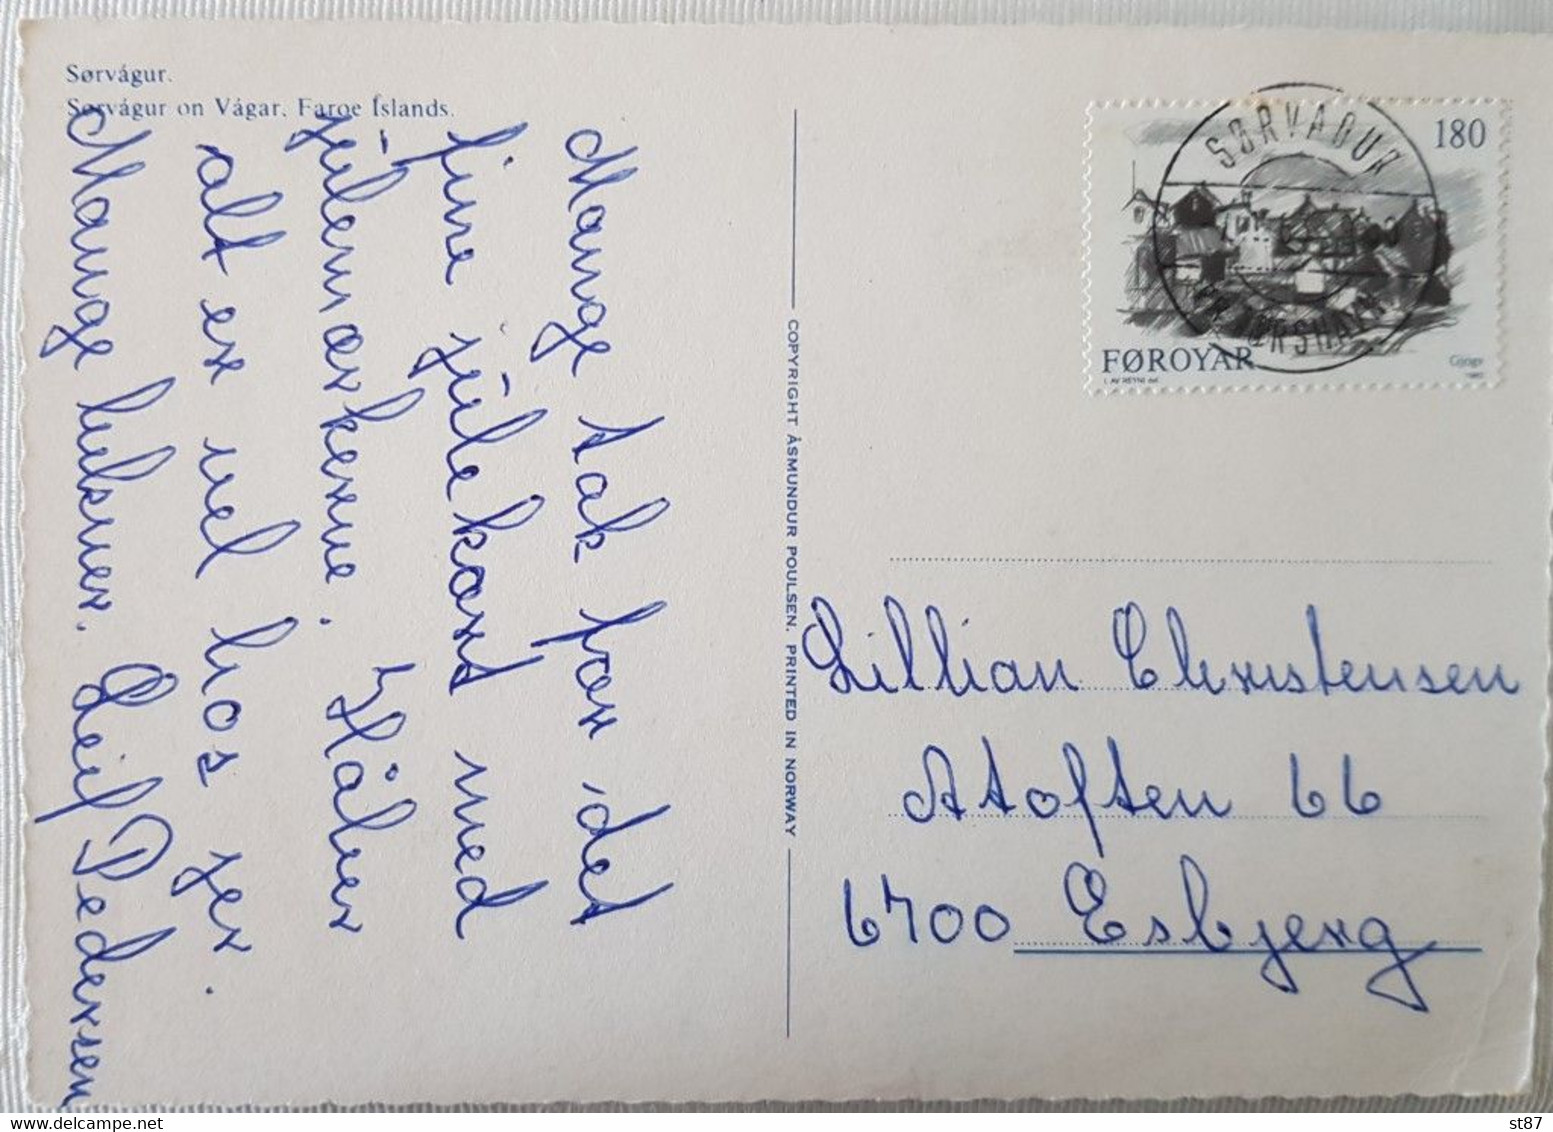 Sørvágur.
Sørvágur on Vágar. Faroe Íslands.
Mange tak for det
fine julekort med
julemærkerne. Håber
alt er vel hos jer.
Mange hilsner. Leif Pedersen
COPYRIGHT ÅSMUNDUR POULSEN. PRINTED IN NORWAY
180
SØRVÁGUR
TÓRSHAVN
FØROYAR
I. AV REYNI del.
Gjógv
Lillian Christensen
Atoften 66
6700 Esbjerg
st87